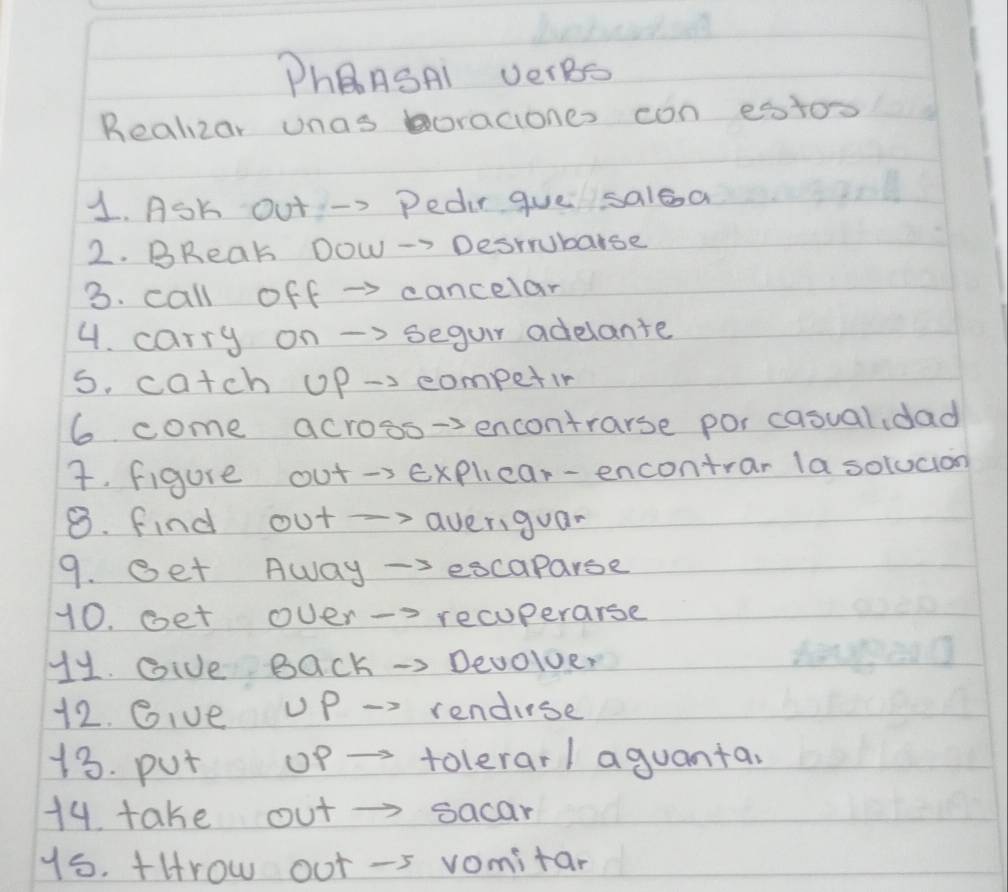 PhRASAl verbs
Realizar unas oraciones con estos
1. Ask out -> Pedir que salga
2. BReak Dow -> Desrrubarse
3. call off -> cancelar
4. carry on -> seguir adelante
5. catch up -> competir
6 come across -> encontrarse por casualidad
7. figure out -> explicar - encontrar la solucion
8. find out -> averiguar
9. Get Away -> escaparse
10. Get over -> recuperarse
11. Give Back -> Devolver
12. Give UP -> rendirse
13. put UP -> tolerar/ aguanta.
14. take out -> sacar
15. tHrow out -> vomitar